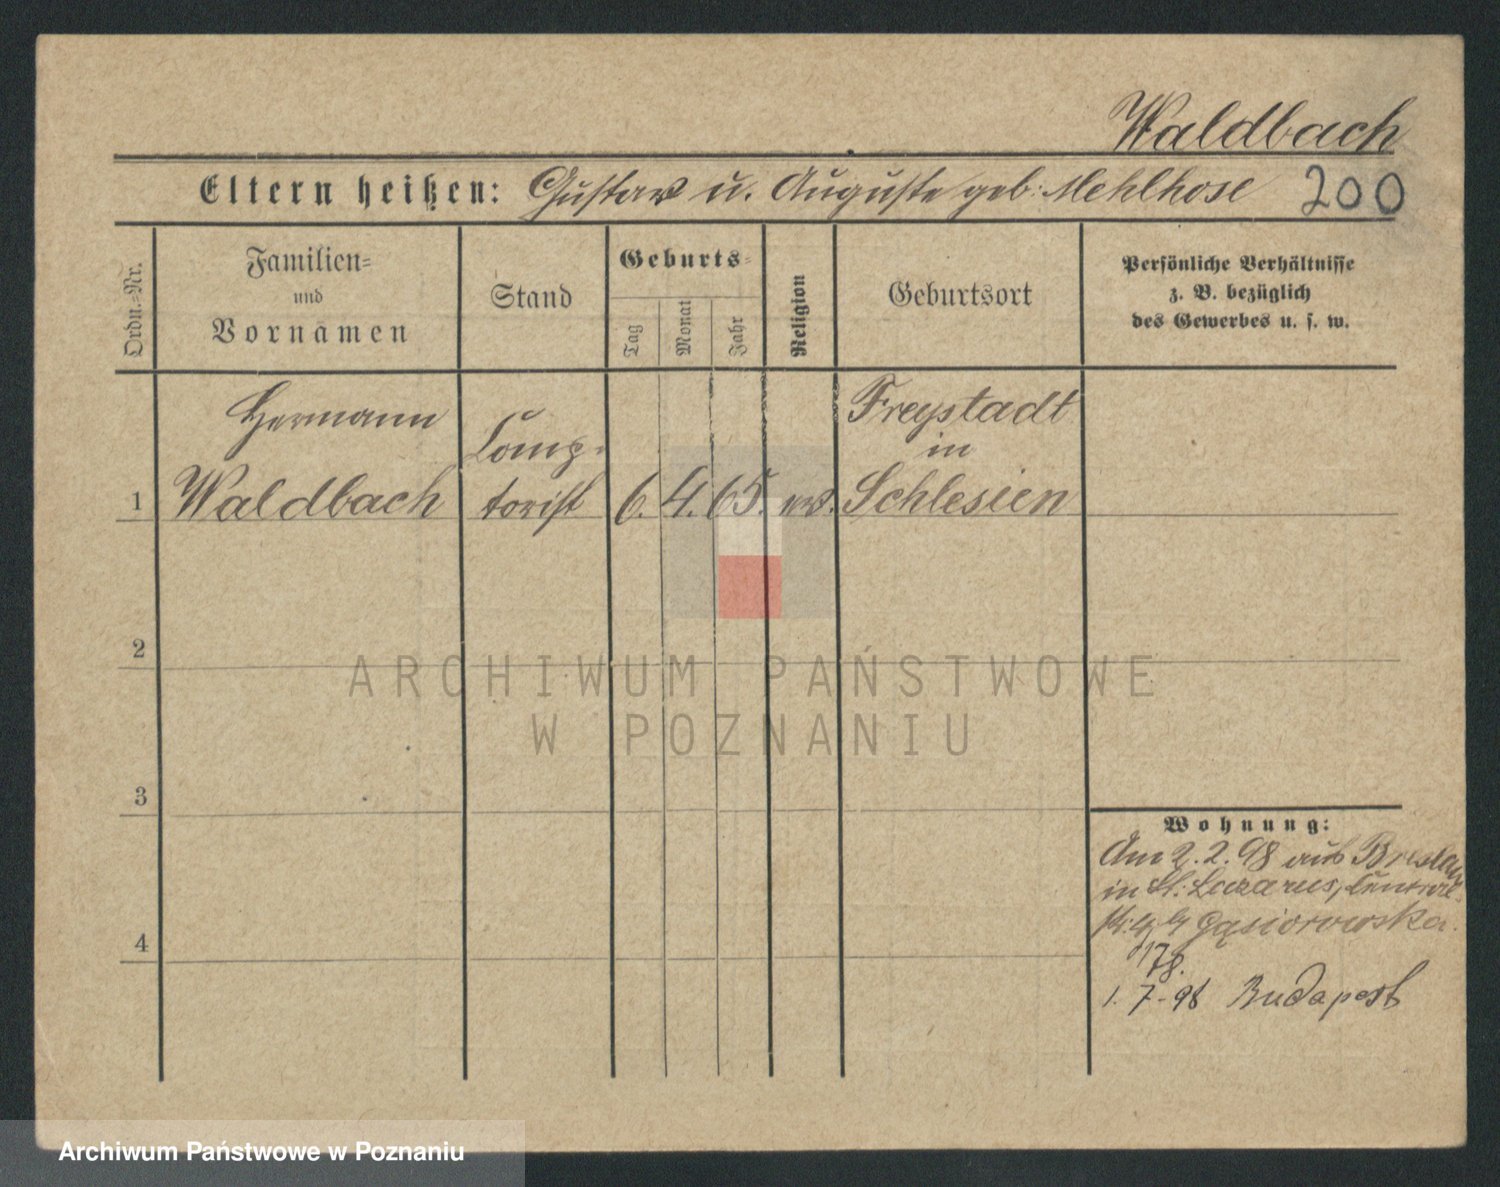 Waldbach
Eltern heißen: Gustav u. Auguste geb: Mehlhose 200
Ordn.=Nr.
Familien=
und
Vornamen
Stand
Geburts=
Tag
Monat
Jahr
Religion
Geburtsort
Persönliche Verhältnisse
z. B. bezüglich
des Gewerbes u. s. w.
1
Hermann
Waldbach
Comp=
torist
6. 4. 65. ev.
Freystadt
in
Schlesien
2
3
4
Wohnung:
Am 2.2.98 aus Breslau
in St: Lazarus, Central-
Gąsiorowska.
178.
1. 7-98 Budapest
ARCHIWUM PAŃSTWOWE
W POZNANIU
Archiwum Państwowe w Poznaniu